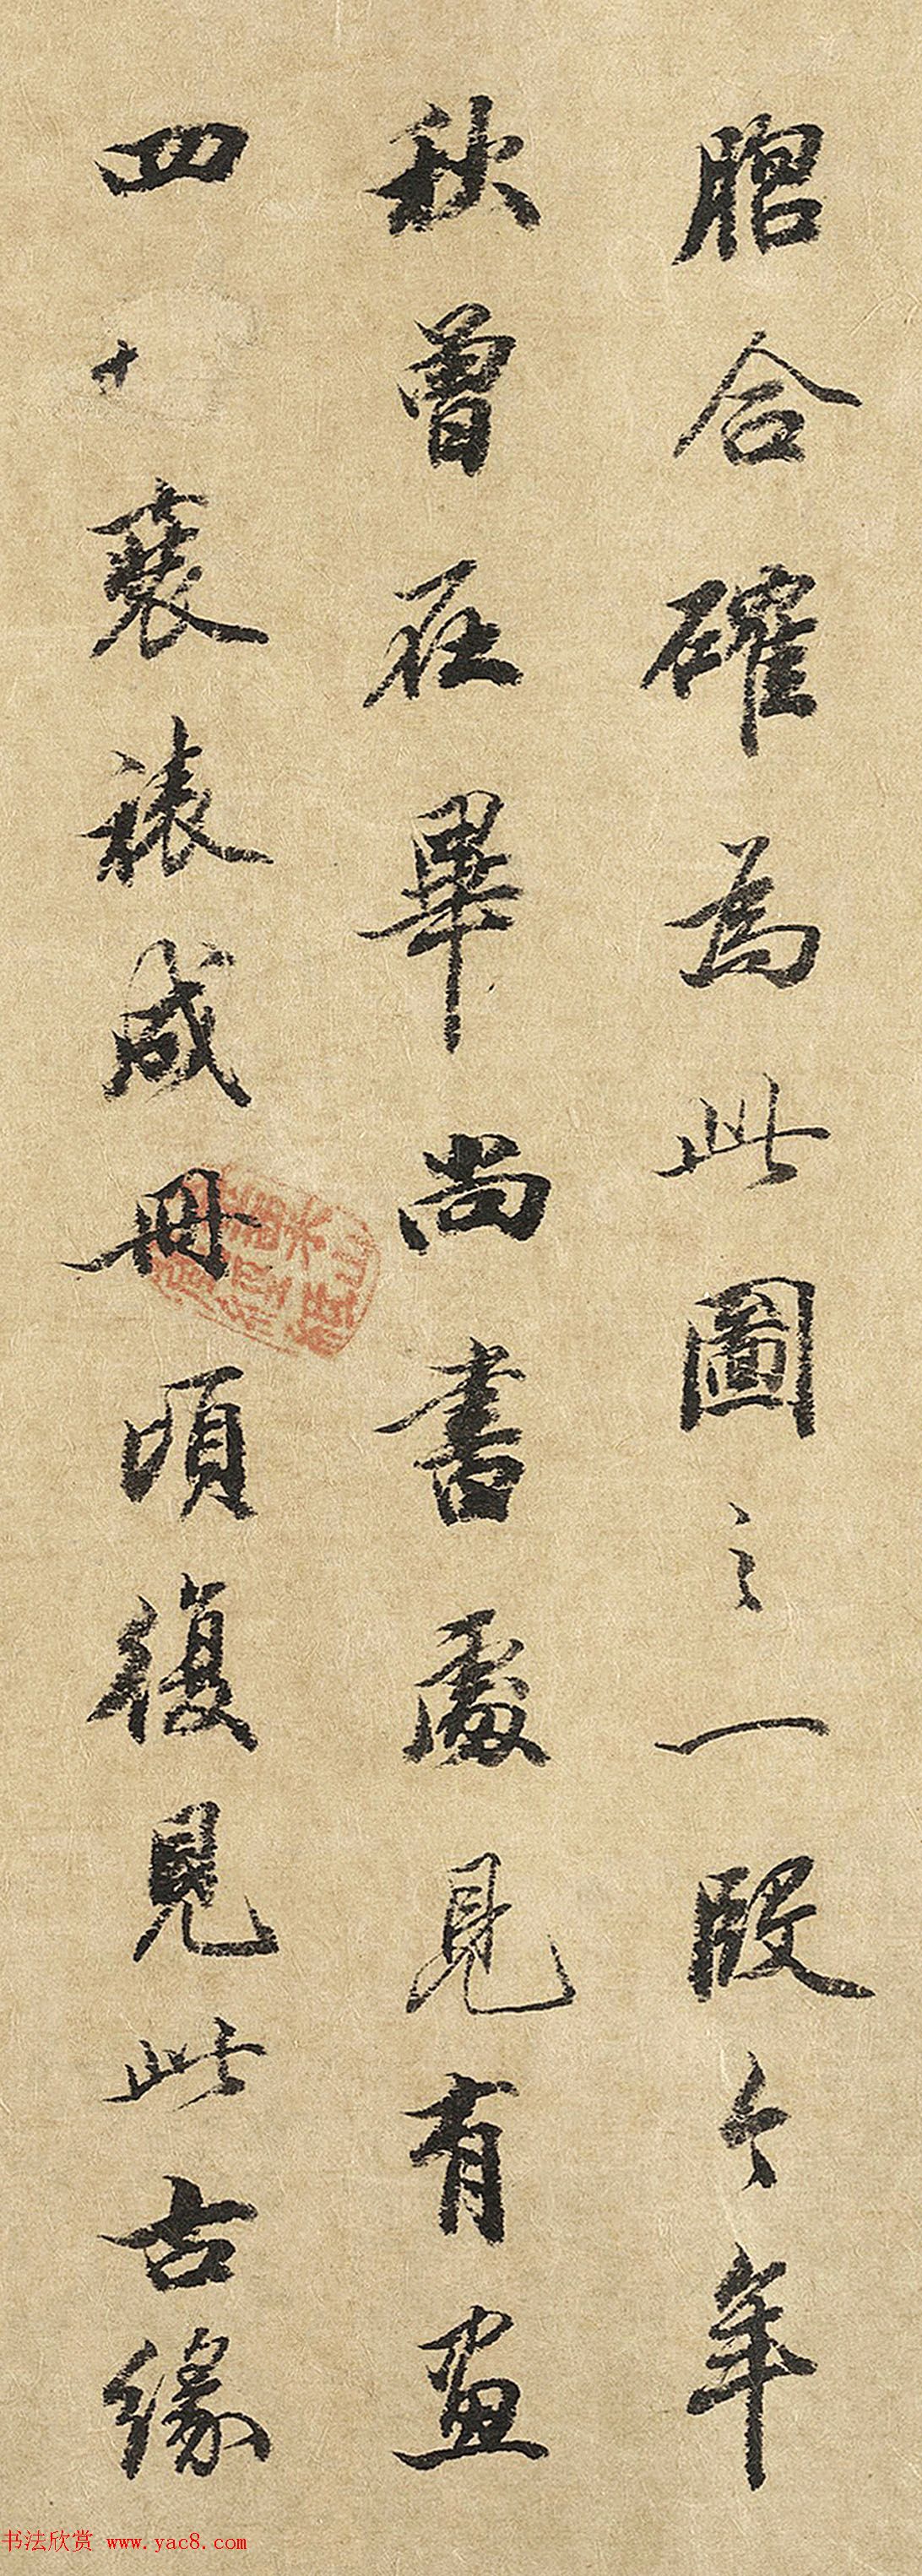 脗合確為此圖之一段今年
秋曾在畢尚書處見有畫
四十裘裱成冊頃復見此古緣
书法欣赏 www.yac8.com